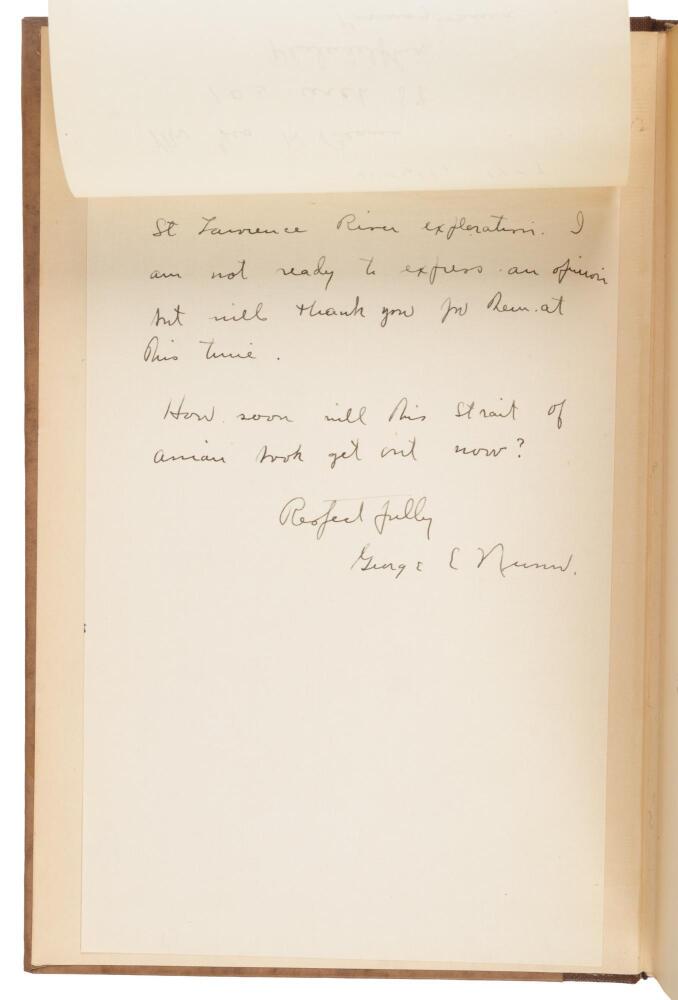 St Lawrence River exploration. I
am not ready to express an opinion
but will thank you for them at
this time.
How soon will this Strait of
Anian book get out now?
Respectfully
George E Nunn.